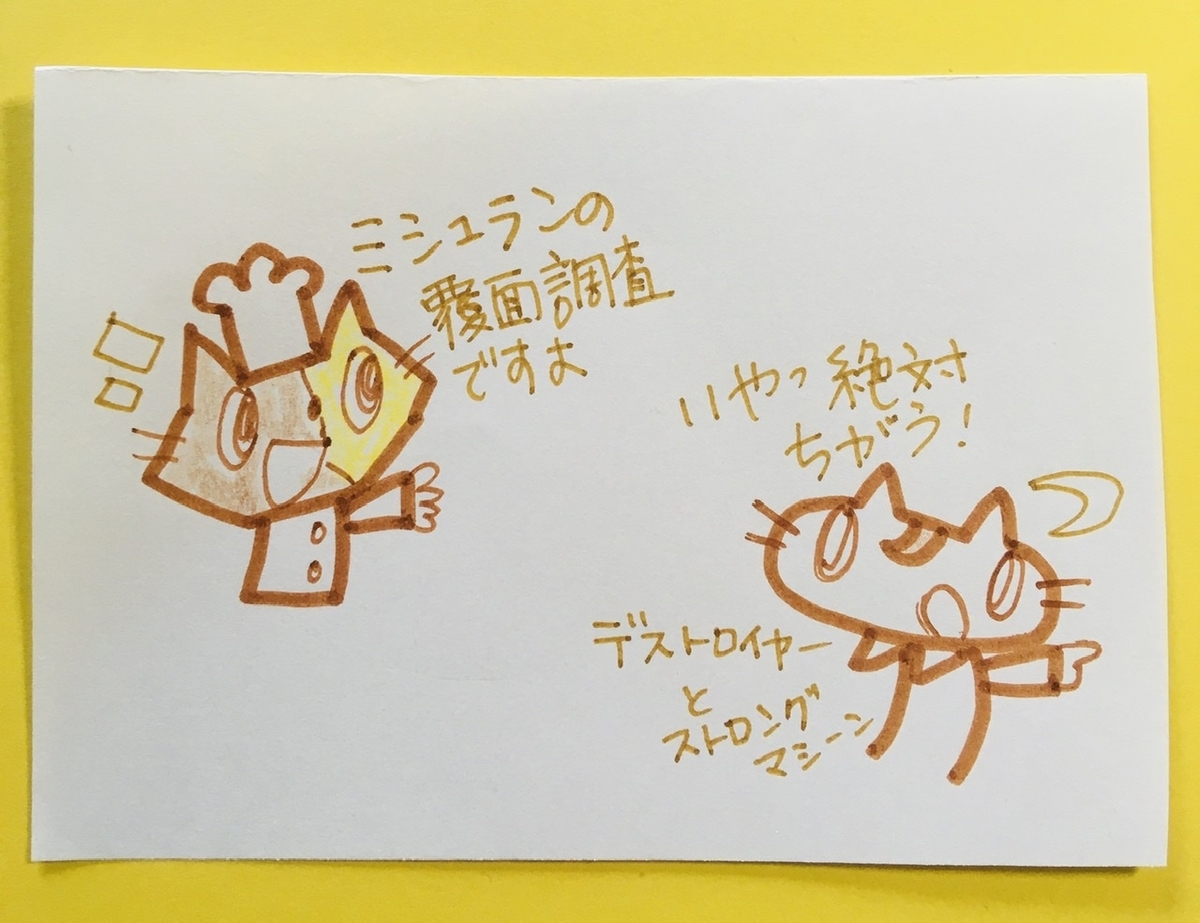 ミシュランの
覆面調査
ですよ
いやっ絶対
ちがう!
デストロイヤー
と
ストロング
マシーン